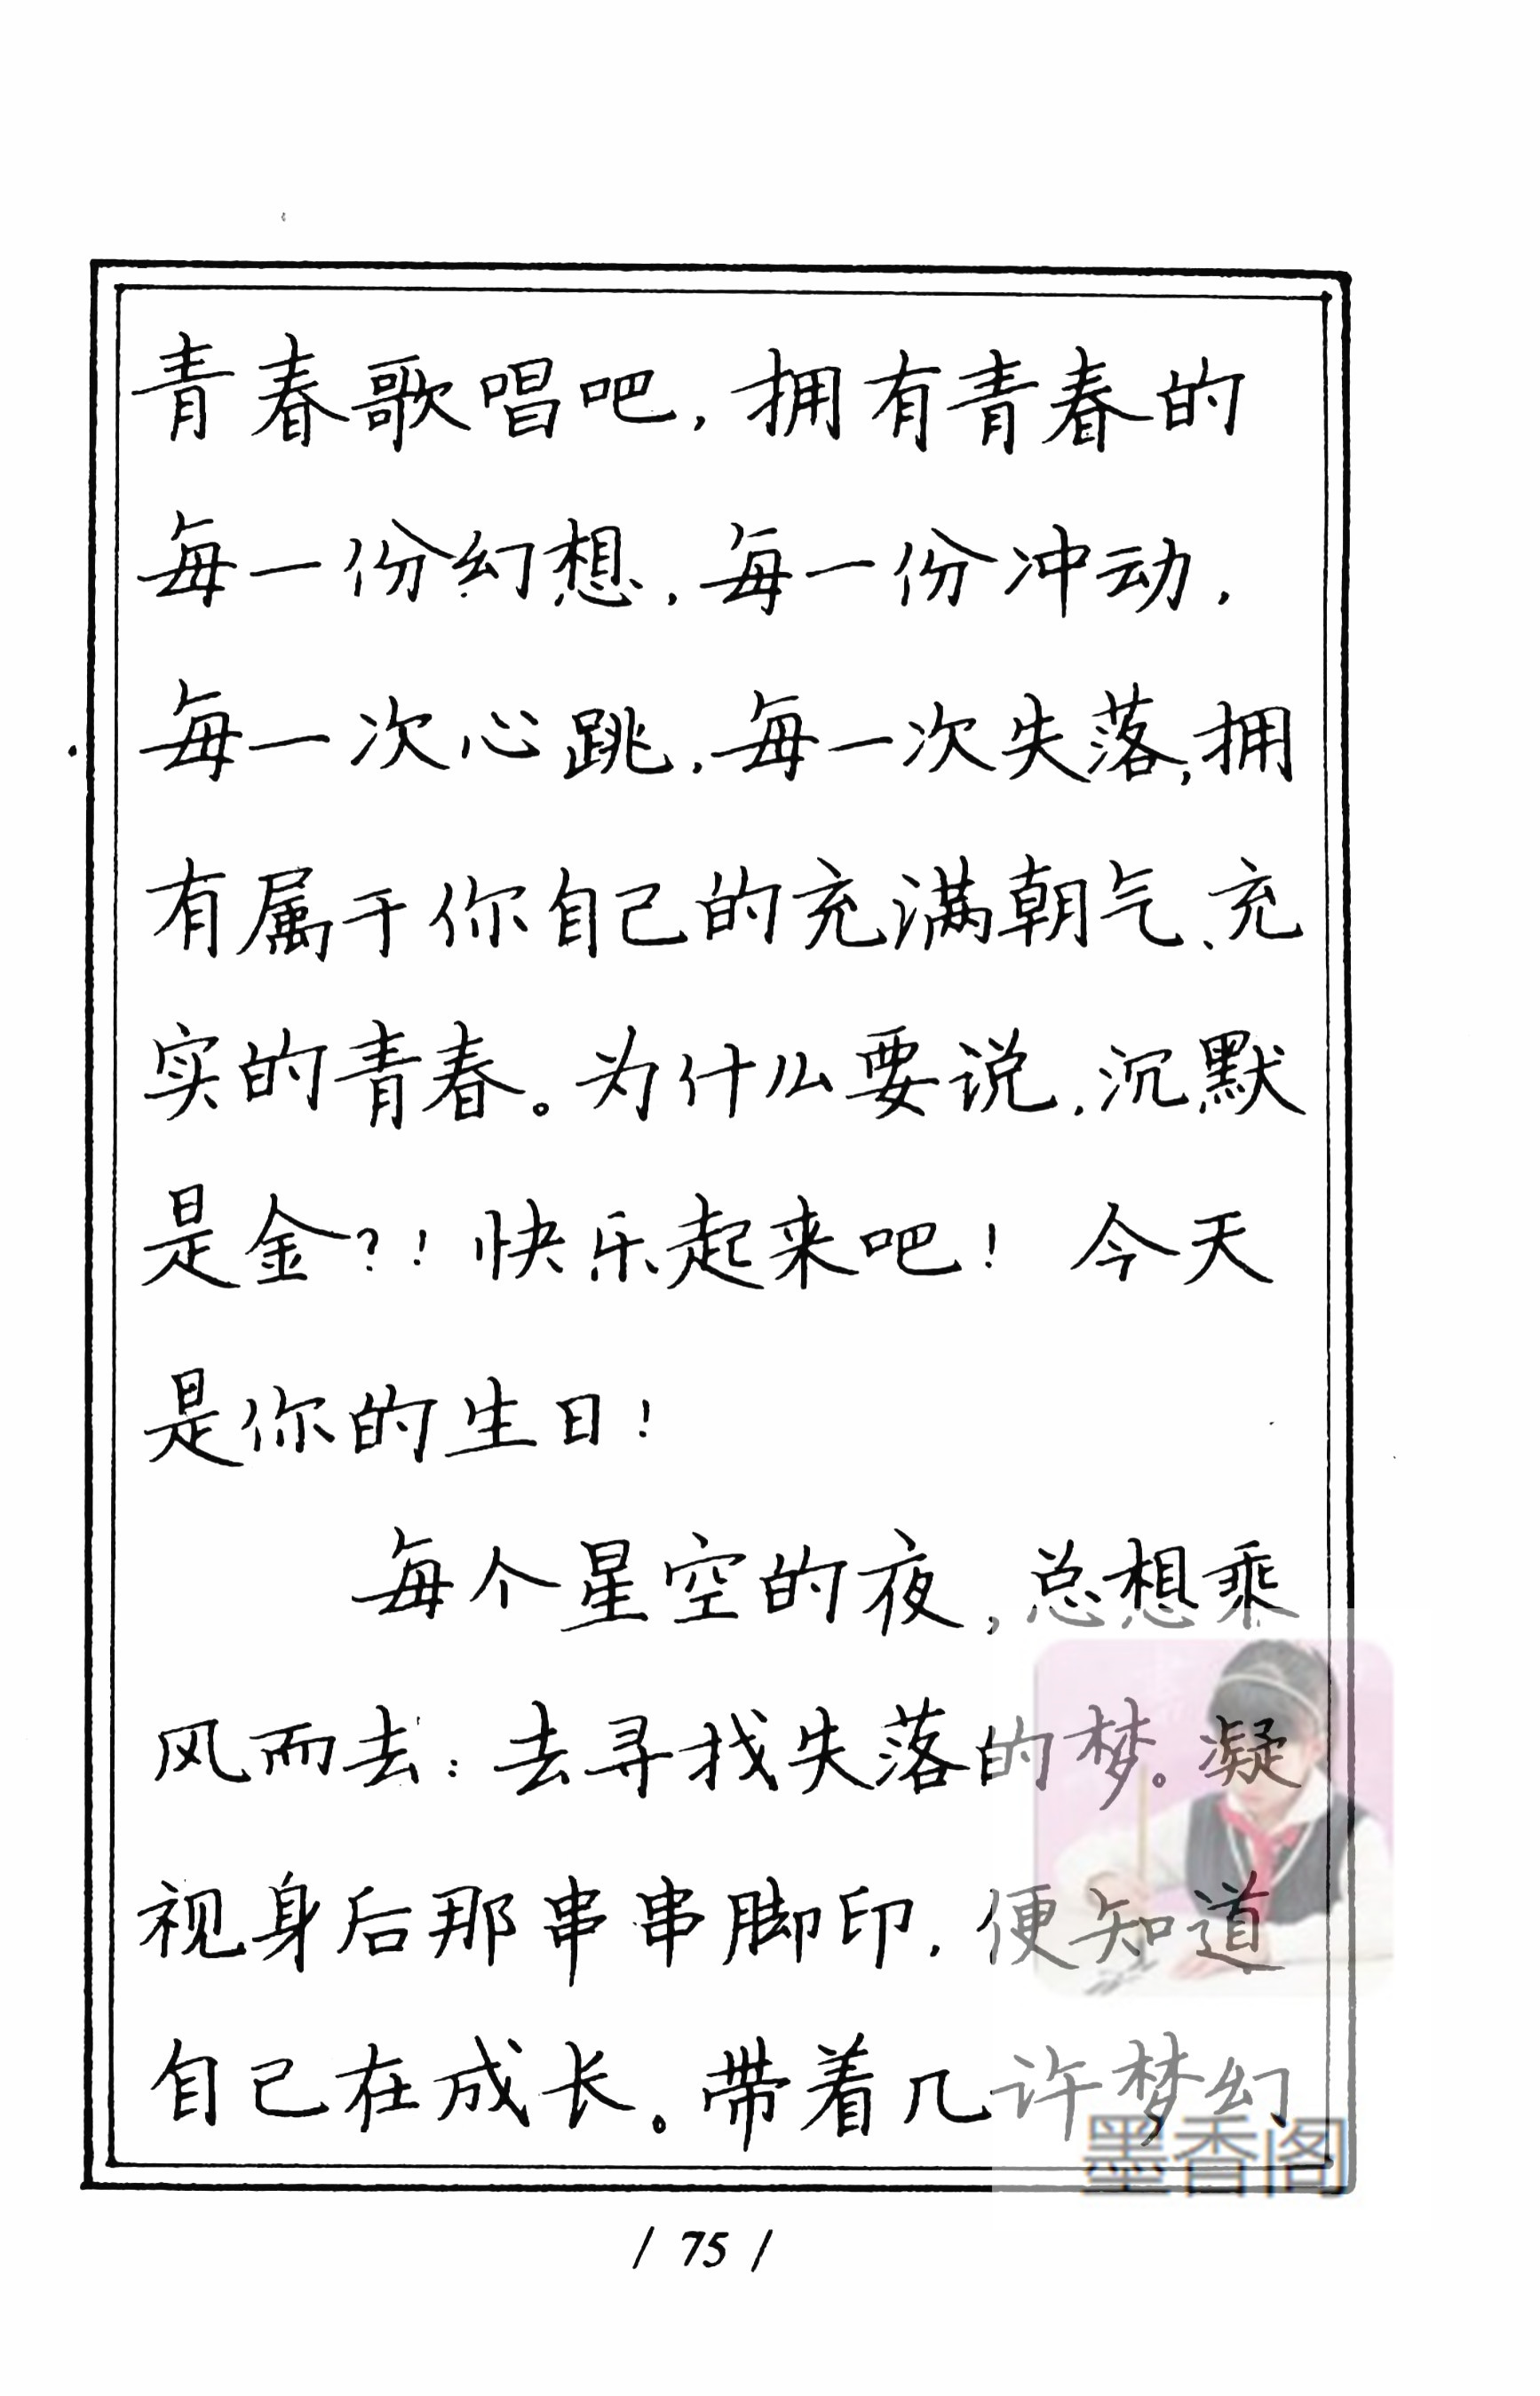 青春歌唱吧,拥有青春的
每一份幻想,每一份冲动,
每一次心跳,每一次失落,拥
有属于你自己的充满朝气、充
实的青春。为什么要说,沉默
是金?!快乐起来吧!今天
是你的生日!
每个星空的夜,总想乘
风而去:去寻找失落的梦。凝
视身后那串串脚印,便知道
自己在成长。带着几许梦幻
墨香阁
/ 75 /